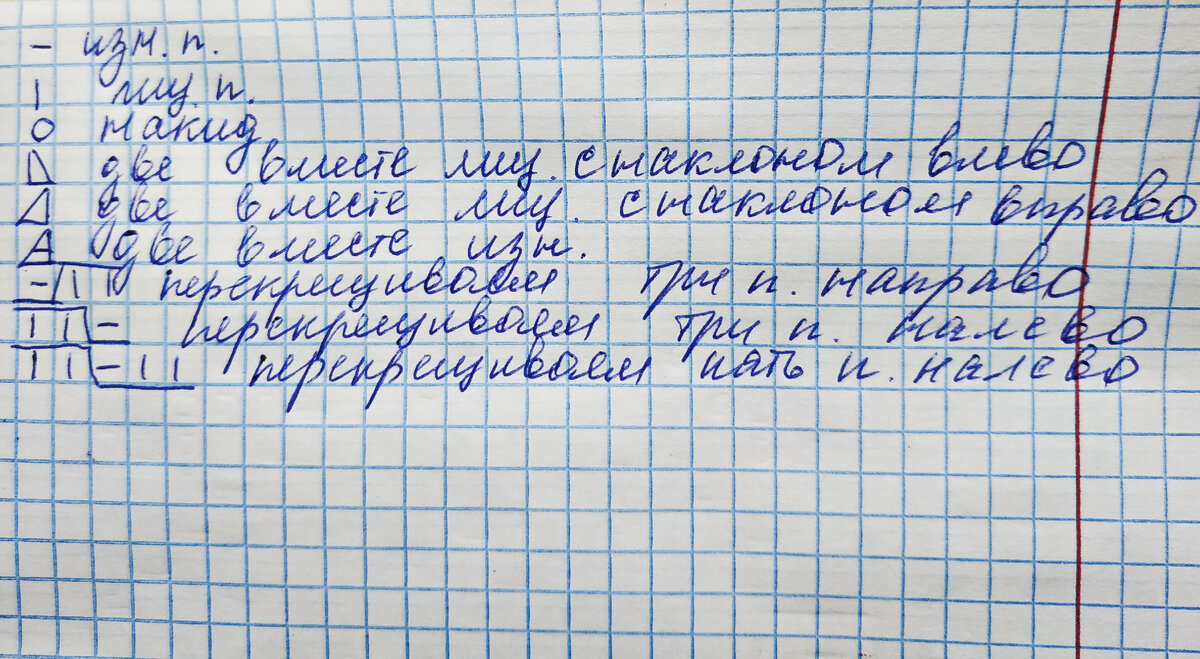 – изн. п.
| лиц. п.
О накид
две вместе лиц. с наклоном влево
две вместе лиц. с наклоном вправо
две вместе изн.
–/| | перекрещиваем три п. направо
| |\– перекрещиваем три п. налево
| |\– | | перекрещиваем пять п. налево